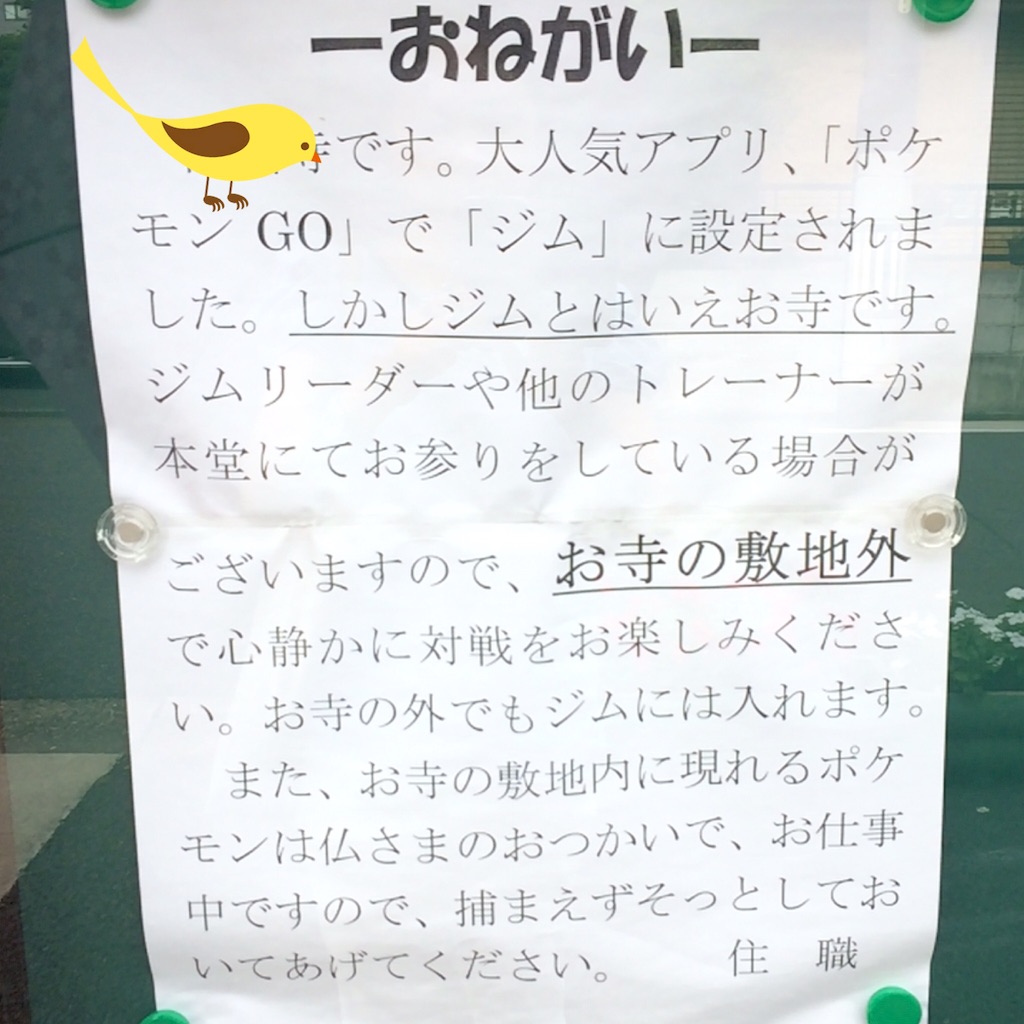 ーおねがいー
寺です。大人気アプリ、「ポケ
モン GO」で「ジム」に設定されま
した。しかしジムとはいえお寺です。
ジムリーダーや他のトレーナーが
本堂にてお参りをしている場合が
ございますので、お寺の敷地外
で心静かに対戦をお楽しみくださ
い。お寺の外でもジムには入れます。
また、お寺の敷地内に現れるポケ
モンは仏さまのおつかいで、お仕事
中ですので、捕まえずそっとしてお
いてあげてください。 住 職